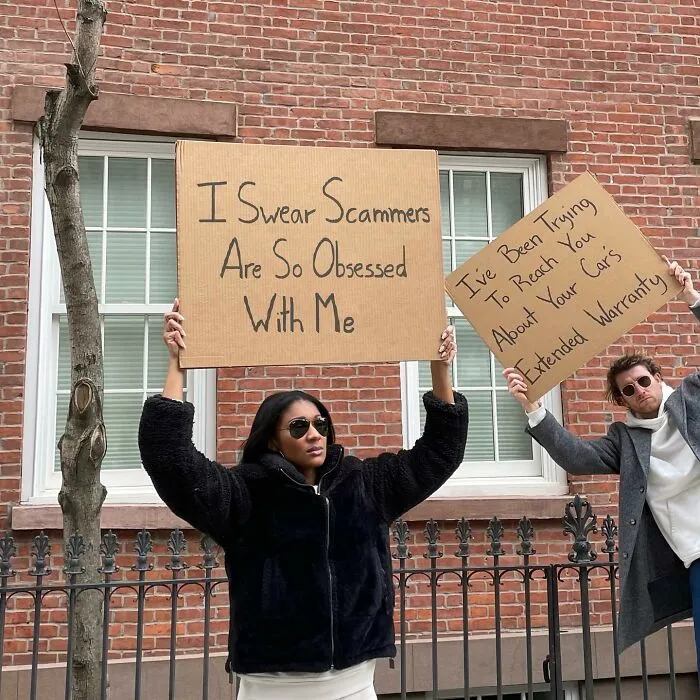 I Swear Scammers
Are So Obsessed
With Me
I've Been Trying
To Reach You
About Your Car's
Extended Warranty